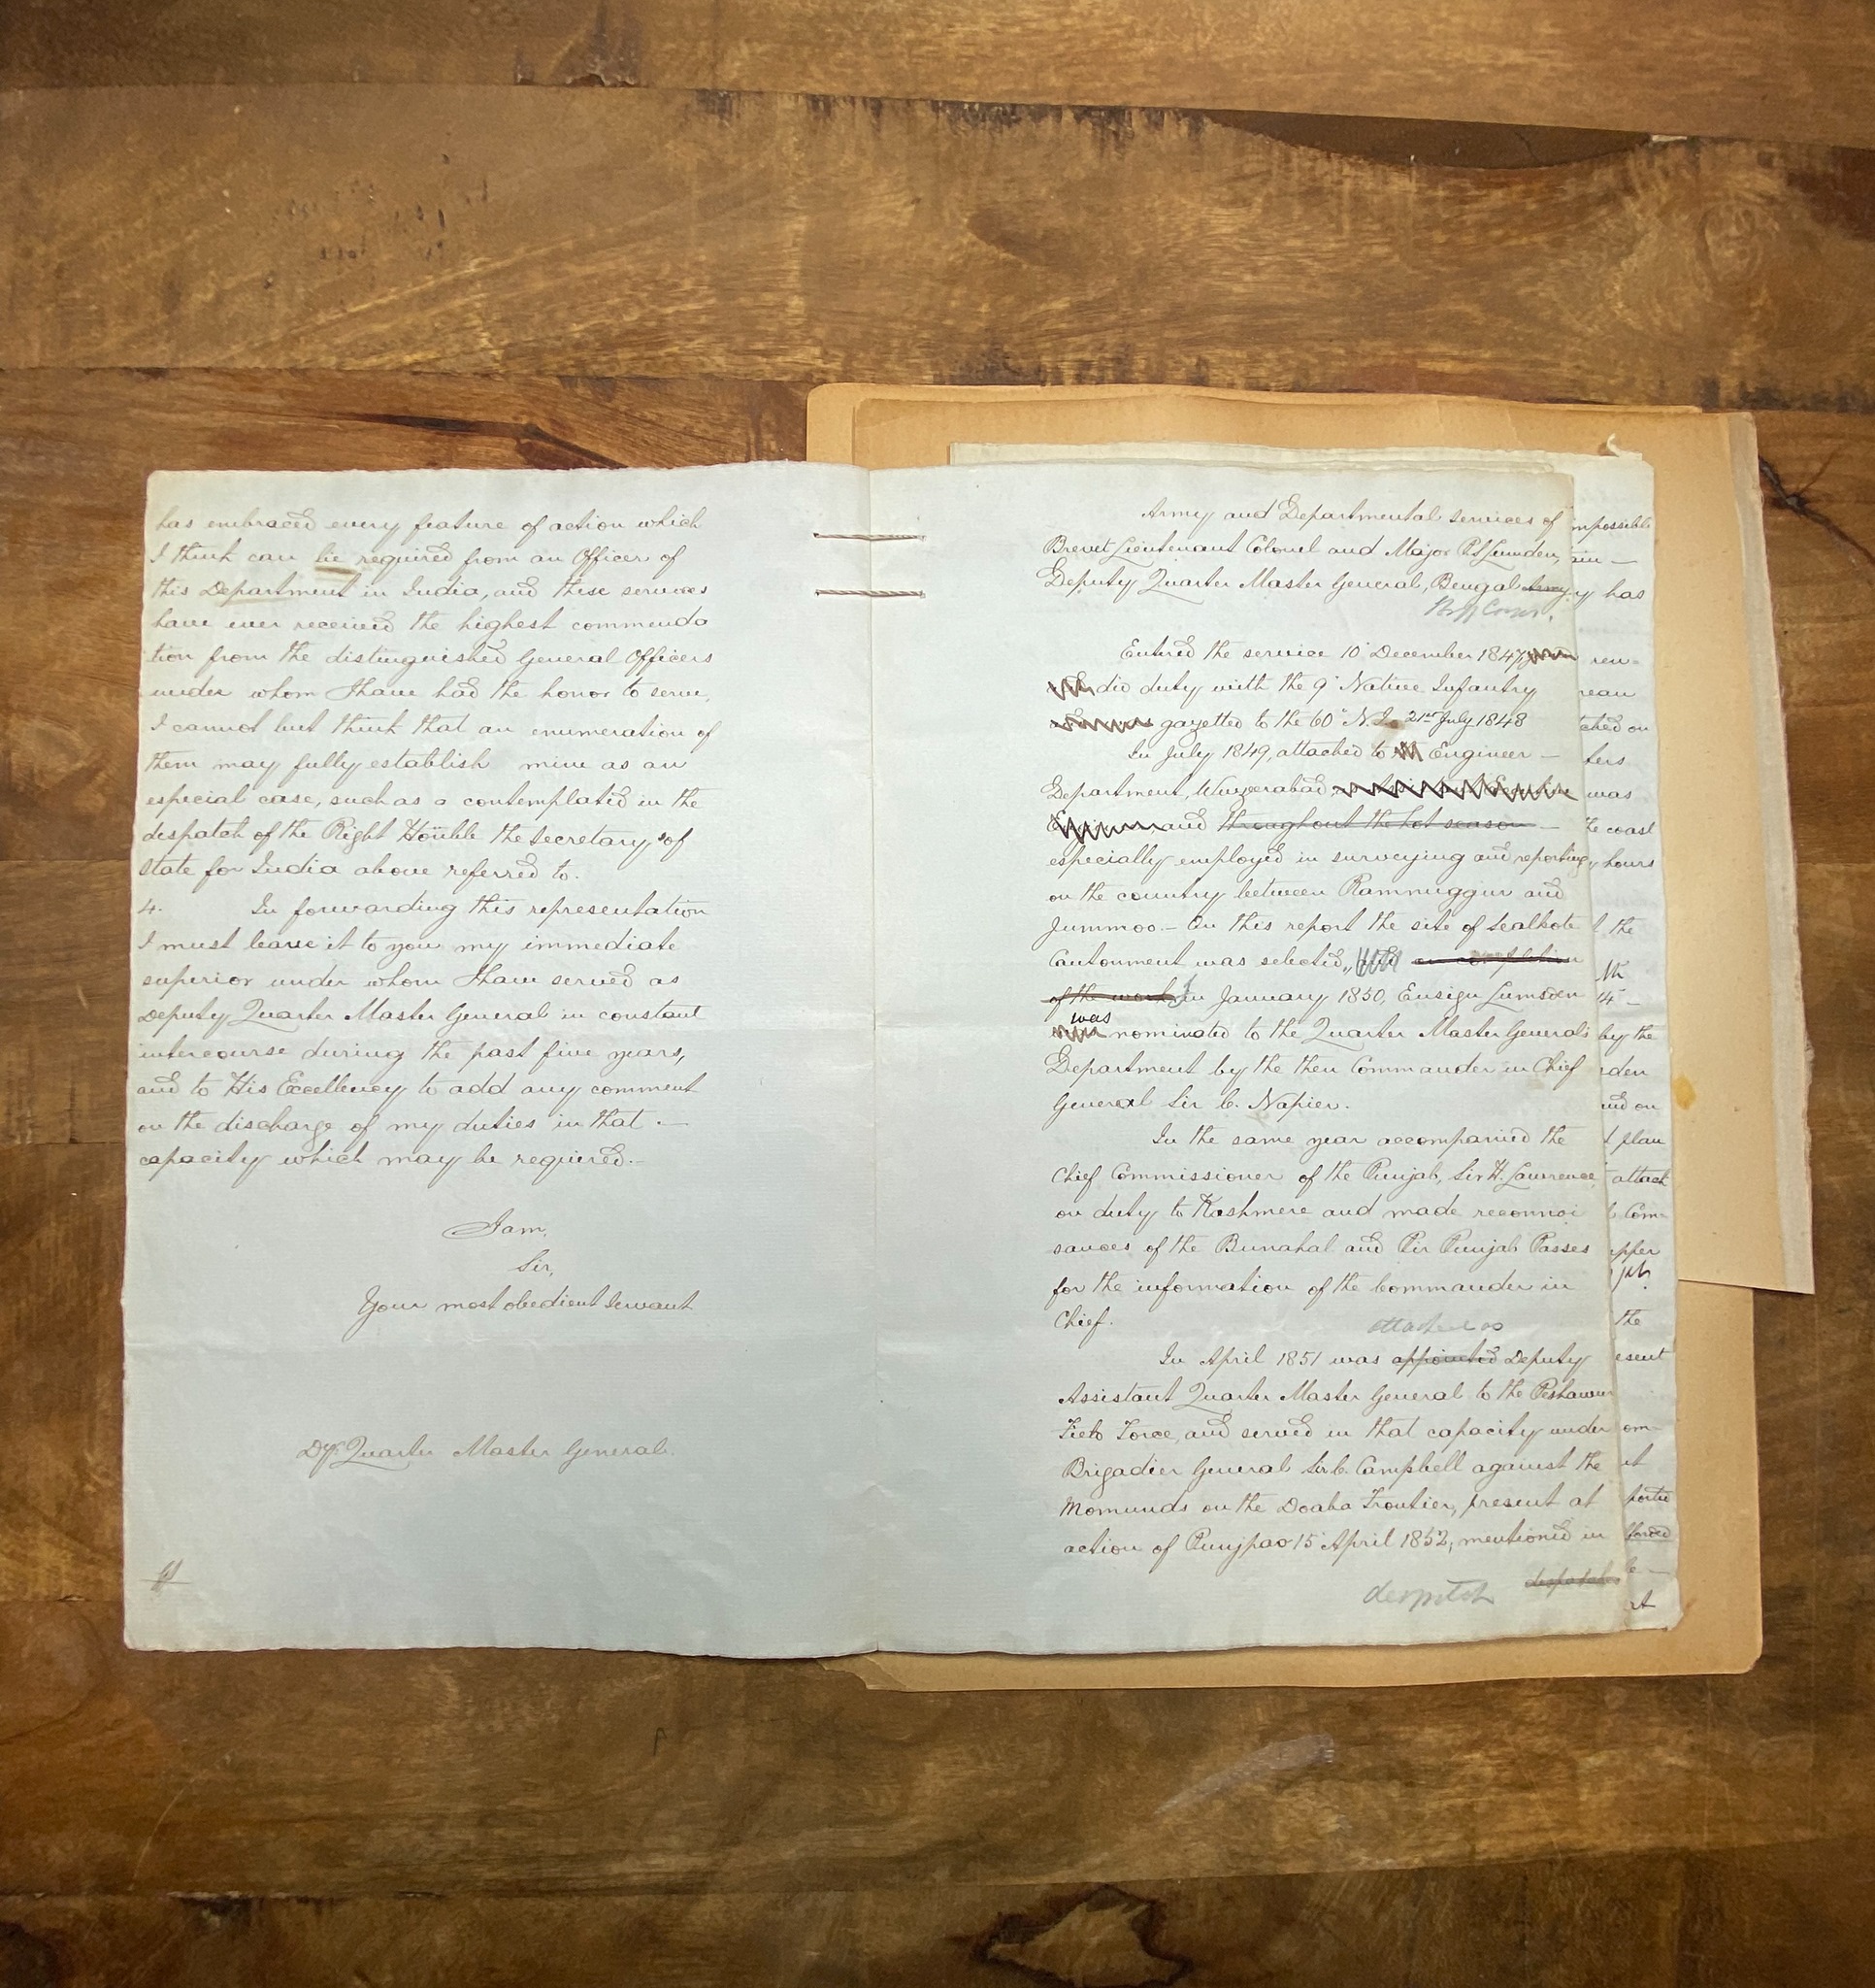 has embraced every feature of action which
I think can be required from an Officer of
this Department in India, and these services
have ever received the highest commenda
tion from the distinguished General Officers
under whom I have had the honor to serve,
I cannot but think that an enumeration of
them may fully establish mine as an
especial case, such as a contemplated in the
despatch of the Right Honble the Secretary of
State for India above referred to.
4. In forwarding this representation
I must leave it to you my immediate
superior under whom I have served as
Deputy Quarter Master General in constant
intercourse during the past five years,
and to His Excellency to add any comment
on the discharge of my duties in that —
capacity which may be required.—
I am,
Sir,
Your most obedient Servant
Dy. Quarter Master General.
Army and Departmental services of
Brevet Lieutenant Colonel and Major P.S. Lumsden,
Deputy Quarter Master General, Bengal Army
Entered the service 10 December 1847
did duty with the 9 Native Infantry
gazetted to the 60 N.I. 21st July 1848
In July 1849, attached to Engineer —
Department, Wuzeerabad,
and throughout the hot season —
especially employed in surveying and reporting
on the country between Ramnuggur and
Jummoo.— On this report the site of Sealkote
Cantonment was selected, on completion
of the work in January 1850, Ensign Lumsden
was
nominated to the Quarter Master Generals
Department by the then Commander in Chief
General Sir C. Napier.
In the same year accompanied the
Chief Commissioner of the Punjab, Sir H. Lawrence,
on duty to Kashmere and made reconnoi
sances of the Bunahal and Pir Punjab Passes
for the information of the Commander in
Chief.
attached as
In April 1851 was appointed Deputy
Assistant Quarter Master General to the Peshawur
Field Force, and served in that capacity under
Brigadier General Sir C. Campbell against the
Momunds on the Doaba Frontier, present at
action of Punjpao 15 April 1852, mentioned in
despatch despatch
mpossible
ain —
y has
ched on
ters
was
the coast
hours
the
by the
sden
and on
plan
attack
Com-
the
esent
om-
at